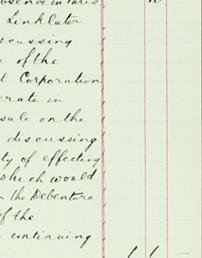 osence in Paris
Linklater
scussing
of the
t Corporation
erate in
sule on the
discussing
ty of effecting
which would
the Debenture
of the
continuing